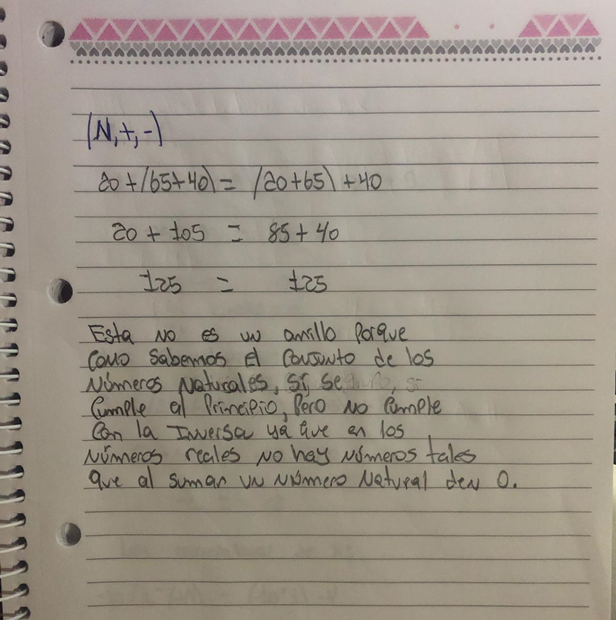 (N,+,-)
20+(65+40) = (20+65) +40
20 + 105 = 85+40
125 = 125
Esta no es un anillo Porque
Como sabemos El Conjunto de los
Números Naturales, sí se
Cumple al Principio, Pero no Cumple
Con la Inversa ya que en los
Números reales no hay Números tales
Que al sumar un Número Natural den 0.